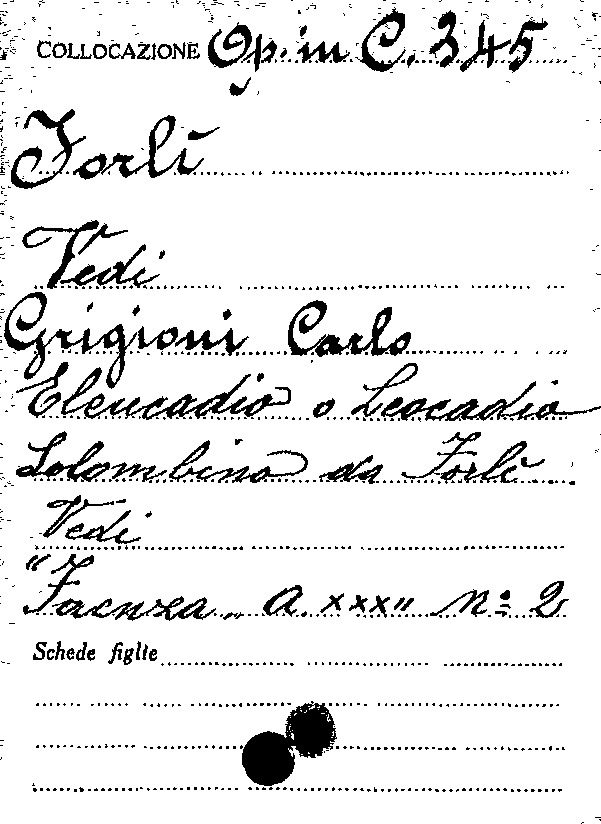 COLLOCAZIONE Op. in C. 345
Forlì
Vedi
Grigioni Carlo
Eleucadio o Leocadio
Solombino da Forlì
Vedi
"Faenza" A. XXXII Nº 2
Schede figlie